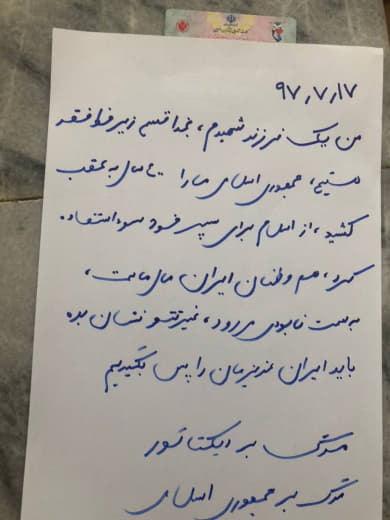 ۹۷٫۷٫۱۷
من یک فرزند شهیدم، بخدا قسم زیر خط فقر
هستیم، جمهوری اسلامی ما را سال به عقب
کشید، از اسلام برای سپر خود سوء استفاده
کرد، هم وطنان ایران مال ماست،
به سمت نابودی می رود، غیرتتو نشان بده
باید ایران عزیزمان را پس بگیریم
مرگ بر دیکتاتور
مرگ بر جمهوری اسلامی